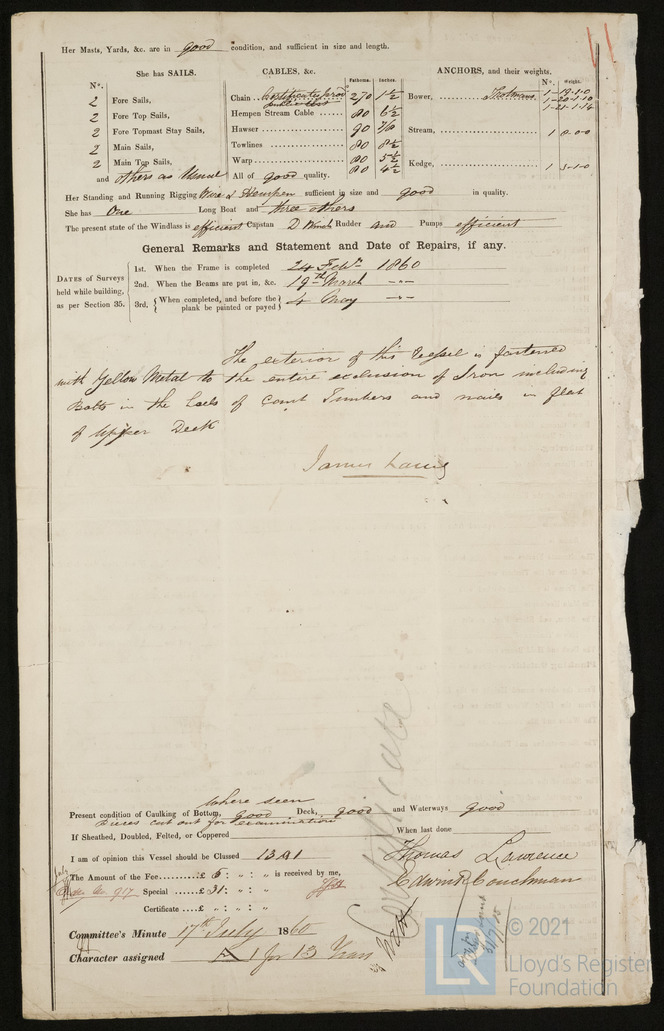 Her Masts, Yards, &c. are in good condition, and sufficient in size and length.
She has SAILS.
Nº.
2 Fore Sails,
2 Fore Top Sails,
2 Fore Topmast Stay Sails,
2 Main Sails,
2 Main Top Sails,
and others as Usual
CABLES, &c.
Fathoms. Inches.
Chain certificate prod 270 1½
public test
Hempen Stream Cable 80 6½
Hawser 90 7/8
Towlines 80 8½
Warp 80 5½
80 4½
All of good quality.
ANCHORS, and their weights.
Nº. Weight.
Bower, 1-19-1-0
1-20-1-10
1-21-1-14
Stream, 1 8-0-0
Kedge, 1 3-1-0
Her Standing and Running Rigging Wire & Hempen sufficient in size and good in quality.
She has One Long Boat and three others
The present state of the Windlass is efficient Capstan D Winch Rudder and Pumps efficient
General Remarks and Statement and Date of Repairs, if any.
DATES of Surveys held while building, as per Section 35.
1st. When the Frame is completed 24 Feby 1860
2nd. When the Beams are put in, &c. 19th March -"-
3rd. When completed, and before the plank be painted or payed 4 May -"-
The exterior of this Vessel is fastened
with Yellow Metal to the entire exclusion of Iron including
Bolts in the of Cant Timbers and nails in flat
of Upper Deck
James Laing
where seen
Present condition of Caulking of Bottom, good Deck, good and Waterways good
Pieces cut out for examination
If Sheathed, Doubled, Felted, or Coppered When last done
I am of opinion this Vessel should be Classed 13 A 1
Thomas Lawrence
The Amount of the Fee £ 5 : " : " is received by me,
Special £ 31 : " : "
Edwin Couchman
Certificate £ " : " : "
Committee's Minute 17th July 1860
Character assigned A 1 for 13 Years
© 2021
Lloyd's Register
Foundation